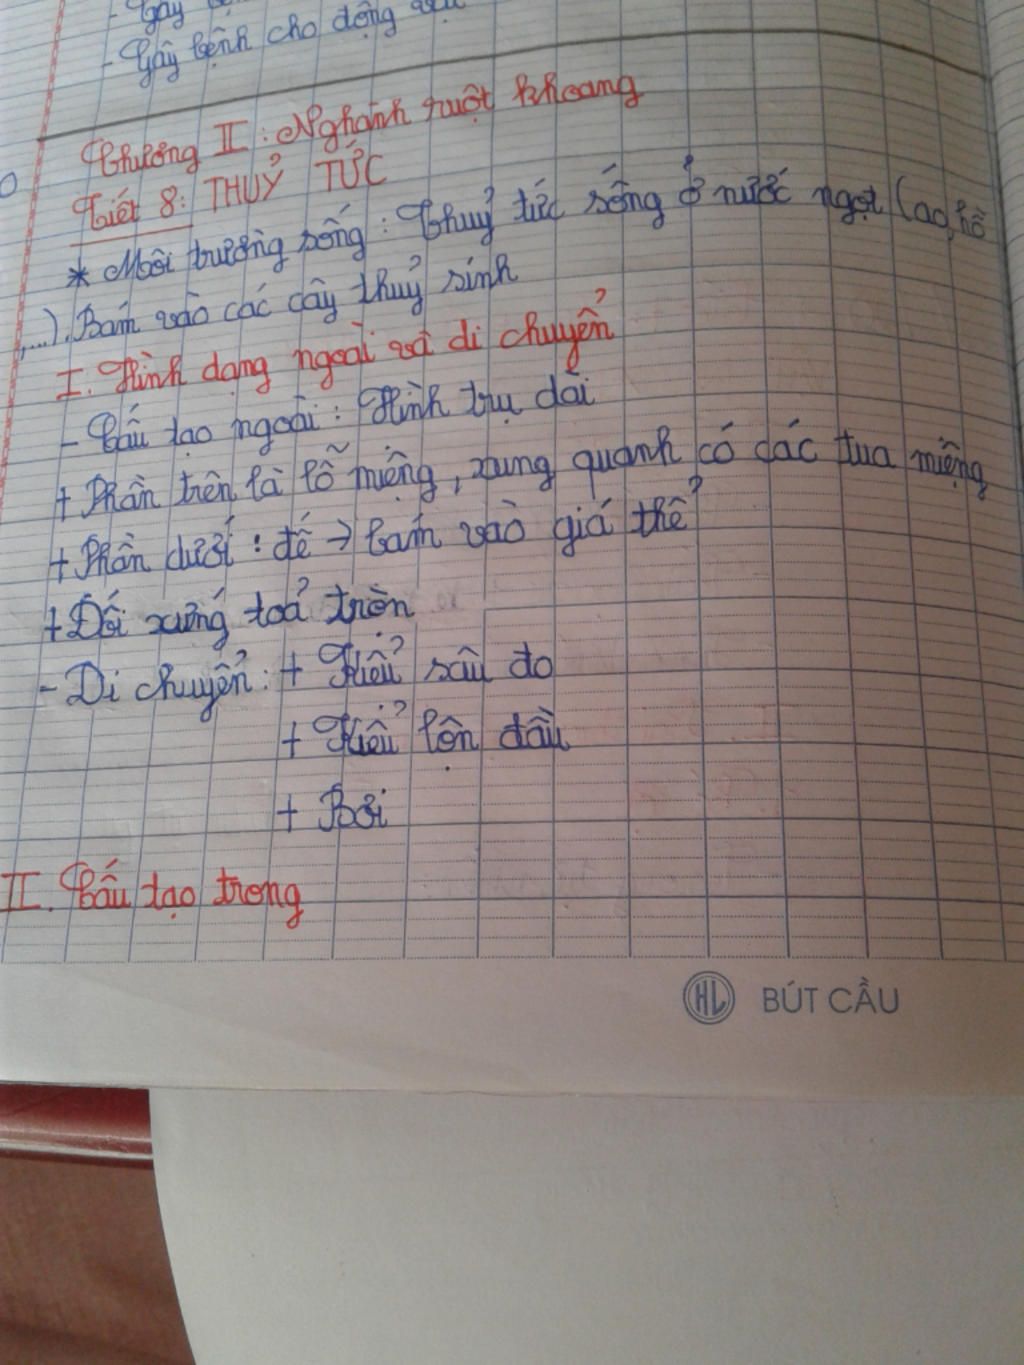 - Gây
- Gây bệnh cho động
Chương II: Nghành ruột khoang
Tiết 8: THUỶ TỨC
* Môi trường sống: Thuỷ tức sống ở nước ngọt (ao, hồ
,...). Bám vào các cây thuỷ sinh
I. Hình dạng ngoài và di chuyển
- Cấu tạo ngoài: Hình trụ dài
+ Phần trên là lỗ miệng, xung quanh có các tua miệng
+ Phần dưới: đế → bám vào giá thể
+ Đối xứng toả tròn
- Di chuyển: + Kiểu sâu đo
+ Kiểu lộn đầu
+ Bơi
II. Cấu tạo trong
HL BÚT CẦU